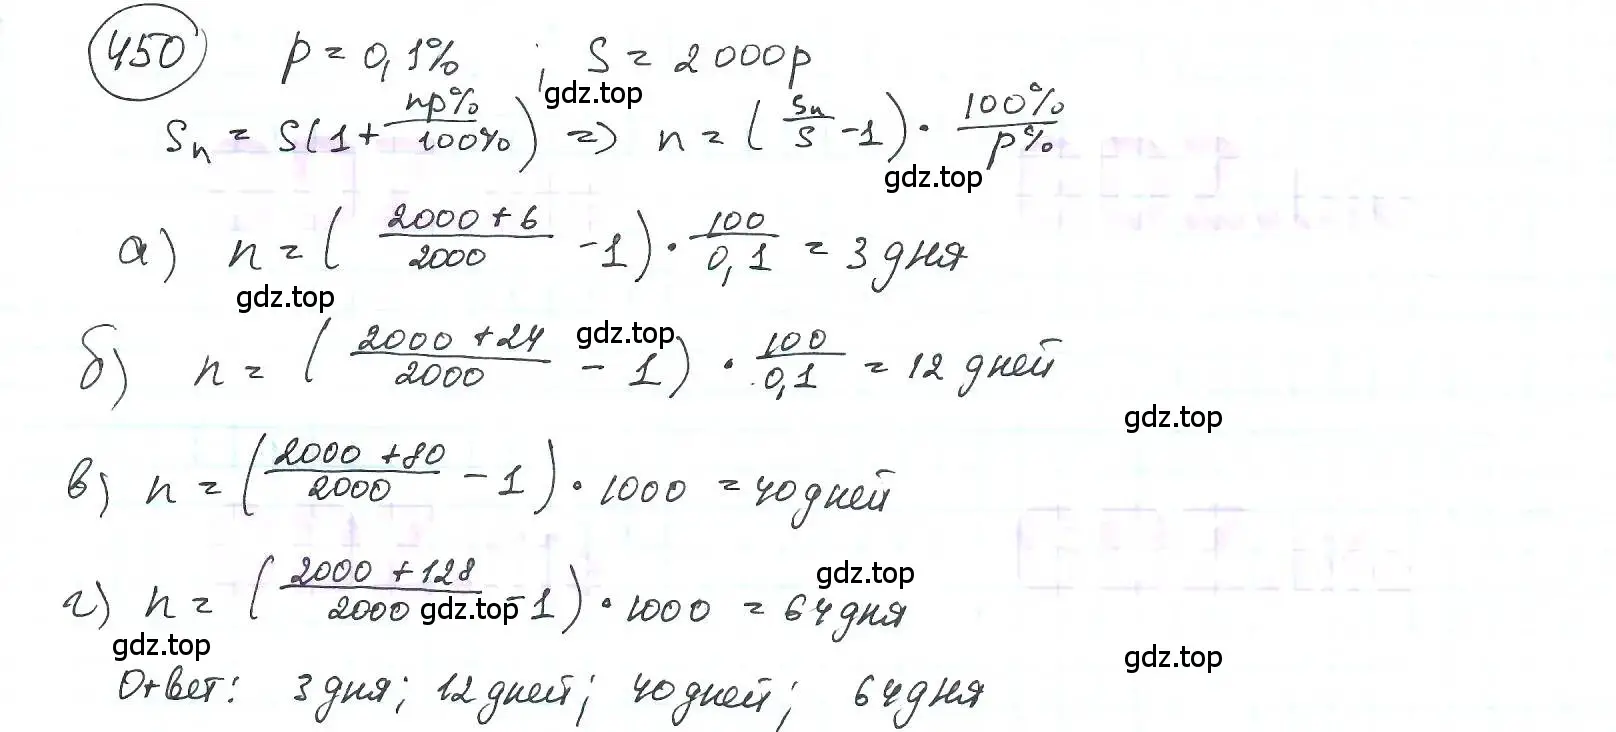 450 p = 0,1% ; S = 2000р
gdz.top
Sn = S(1 + np%/100%) => n = (Sn/S - 1) · 100%/p%
gdz.top
а) n = (2000 + 6/2000 - 1) · 100/0,1 = 3 дня
gdz.top
gdz.top
б) n = (2000 + 24/2000 - 1) · 100/0,1 = 12 дней
gdz.top
в) n = (2000 + 80/2000 - 1) · 1000 = 40 дней
gdz.top
г) n = (2000 + 128/2000 - 1) · 1000 = 64 дня
gdz.top
gdz.top
gdz.top
Ответ: 3 дня; 12 дней; 40 дней; 64 дня